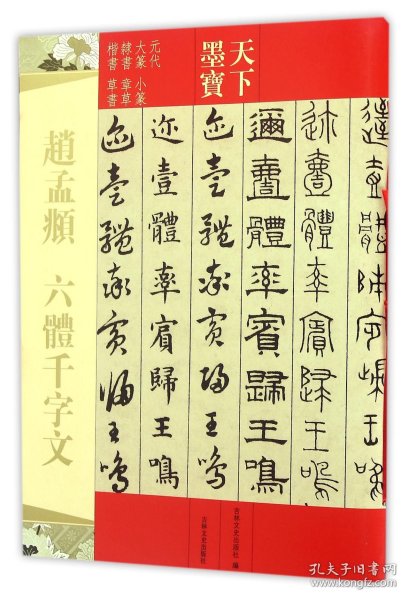 天下
墨寶
元代
大篆 小篆
隸書 章草
楷書 草書
趙孟頫 六體千字文
邇壹體率賓歸王鳴
迩壹體率賓歸王鳴
邇壹體率賓歸王鳴
迩壹體率賓歸王鳴
迩壹體率賓歸王鳴
迩壹體率賓歸王鳴
吉林文史出版社 編
吉林文史出版社
孔夫子旧书网
www.kongfz.com